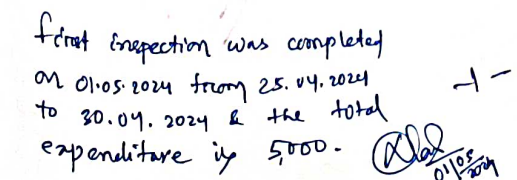 first inspection was completed
on 01.05.2024 from 25.04.2024
to 30.04.2024 & the total
expenditure is 5,000 -
01/05/2024